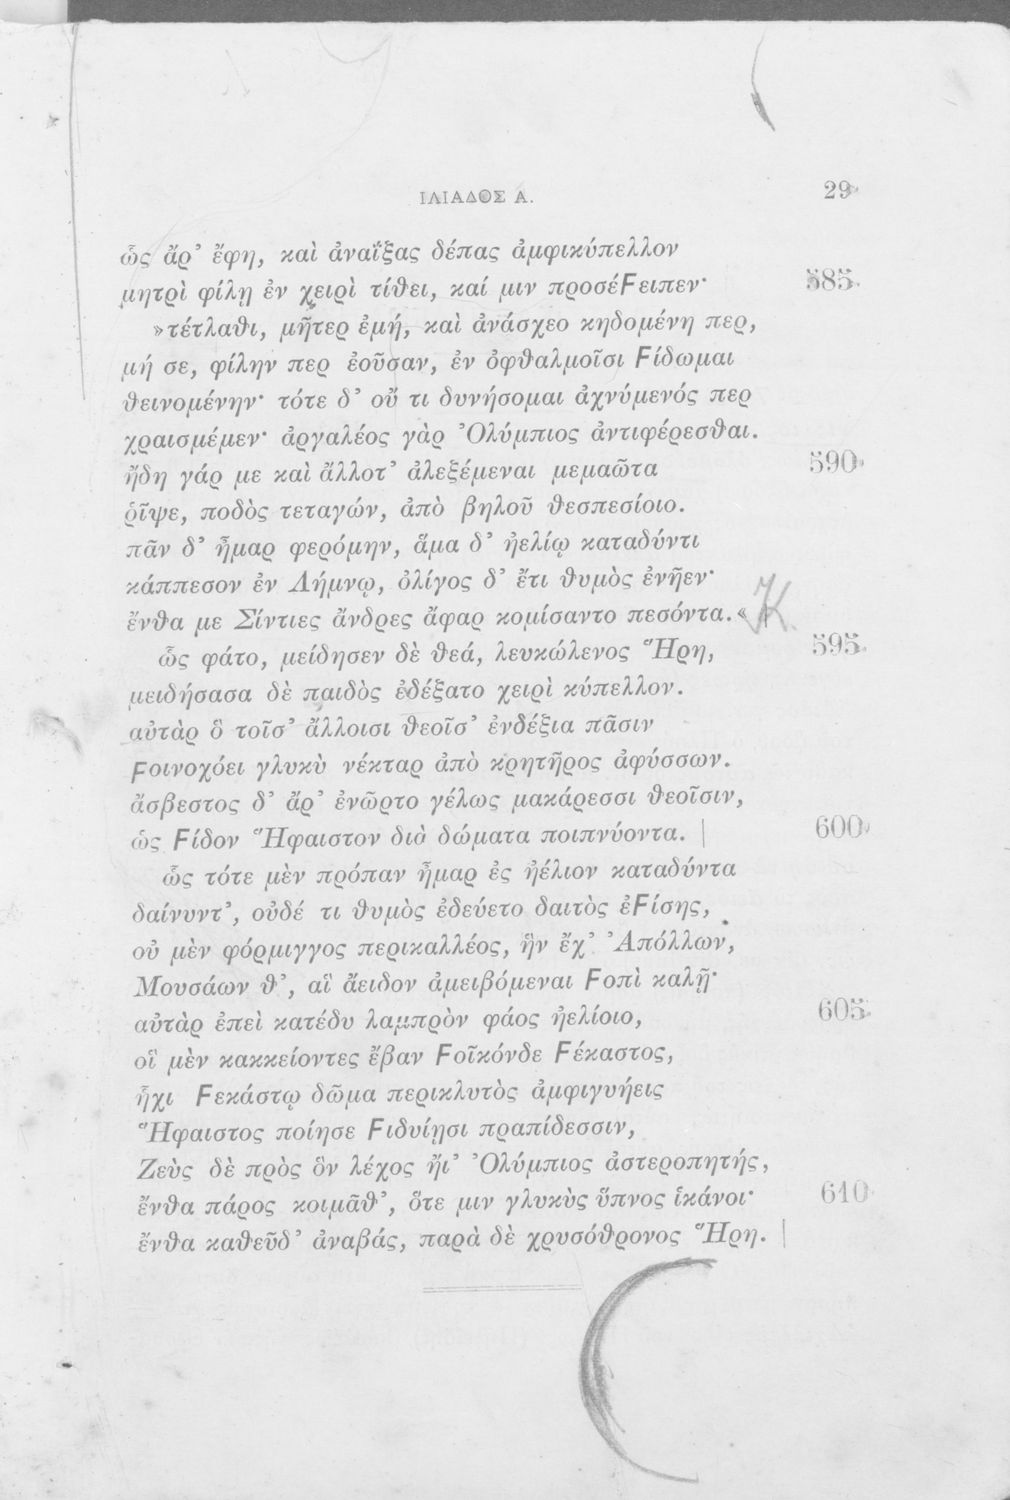 ΙΛΙΑΔΟΣ Α. 29
ὣς ἄρ’ ἔφη, καὶ ἀναΐξας δέπας ἀμφικύπελλον
μητρὶ φίλῃ ἐν χειρὶ τίθει, καί μιν προσέϜειπεν· 585
»τέτλαθι, μῆτερ ἐμή, καὶ ἀνάσχεο κηδομένη περ,
μή σε, φίλην περ ἐοῦσαν, ἐν ὀφθαλμοῖσι Ϝίδωμαι
θεινομένην· τότε δ’ οὔ τι δυνήσομαι ἀχνύμενός περ
χραισμέμεν· ἀργαλέος γὰρ Ὀλύμπιος ἀντιφέρεσθαι.
ἤδη γάρ με καὶ ἄλλοτ’ ἀλεξέμεναι μεμαῶτα 590
ῥῖψε, ποδὸς τεταγών, ἀπὸ βηλοῦ θεσπεσίοιο.
πᾶν δ’ ἦμαρ φερόμην, ἅμα δ’ ἠελίῳ καταδύντι
κάππεσον ἐν Λήμνῳ, ὀλίγος δ’ ἔτι θυμὸς ἐνῆεν·
ἔνθα με Σίντιες ἄνδρες ἄφαρ κομίσαντο πεσόντα.« K
ὣς φάτο, μείδησεν δὲ θεά, λευκώλενος Ἥρη, 595
μειδήσασα δὲ παιδὸς ἐδέξατο χειρὶ κύπελλον.
αὐτὰρ ὃ τοῖσ’ ἄλλοισι θεοῖσ’ ἐνδέξια πᾶσιν
Ϝοινοχόει γλυκὺ νέκταρ ἀπὸ κρητῆρος ἀφύσσων.
ἄσβεστος δ’ ἄρ’ ἐνῶρτο γέλως μακάρεσσι θεοῖσιν,
ὡς Ϝίδον Ἥφαιστον διὰ δώματα ποιπνύοντα. | 600
ὣς τότε μὲν πρόπαν ἦμαρ ἐς ἠέλιον καταδύντα
δαίνυντ’, οὐδέ τι θυμὸς ἐδεύετο δαιτὸς ἐϜίσης,
οὐ μὲν φόρμιγγος περικαλλέος, ἣν ἔχ’ Ἀπόλλων,
Μουσάων θ’, αἳ ἄειδον ἀμειβόμεναι Ϝοπὶ καλῇ·
αὐτὰρ ἐπεὶ κατέδυ λαμπρὸν φάος ἠελίοιο, 605
οἳ μὲν κακκείοντες ἔβαν Ϝοῖκόνδε Ϝέκαστος,
ἧχι Ϝεκάστῳ δῶμα περικλυτὸς ἀμφιγυήεις
Ἥφαιστος ποίησε Ϝιδυίῃσι πραπίδεσσιν,
Ζεὺς δὲ πρὸς ὃν λέχος ἤι’ Ὀλύμπιος ἀστεροπητής,
ἔνθα πάρος κοιμᾶθ’, ὅτε μιν γλυκὺς ὕπνος ἱκάνοι· 610
ἔνθα καθεῦδ’ ἀναβάς, παρὰ δὲ χρυσόθρονος Ἥρη. |